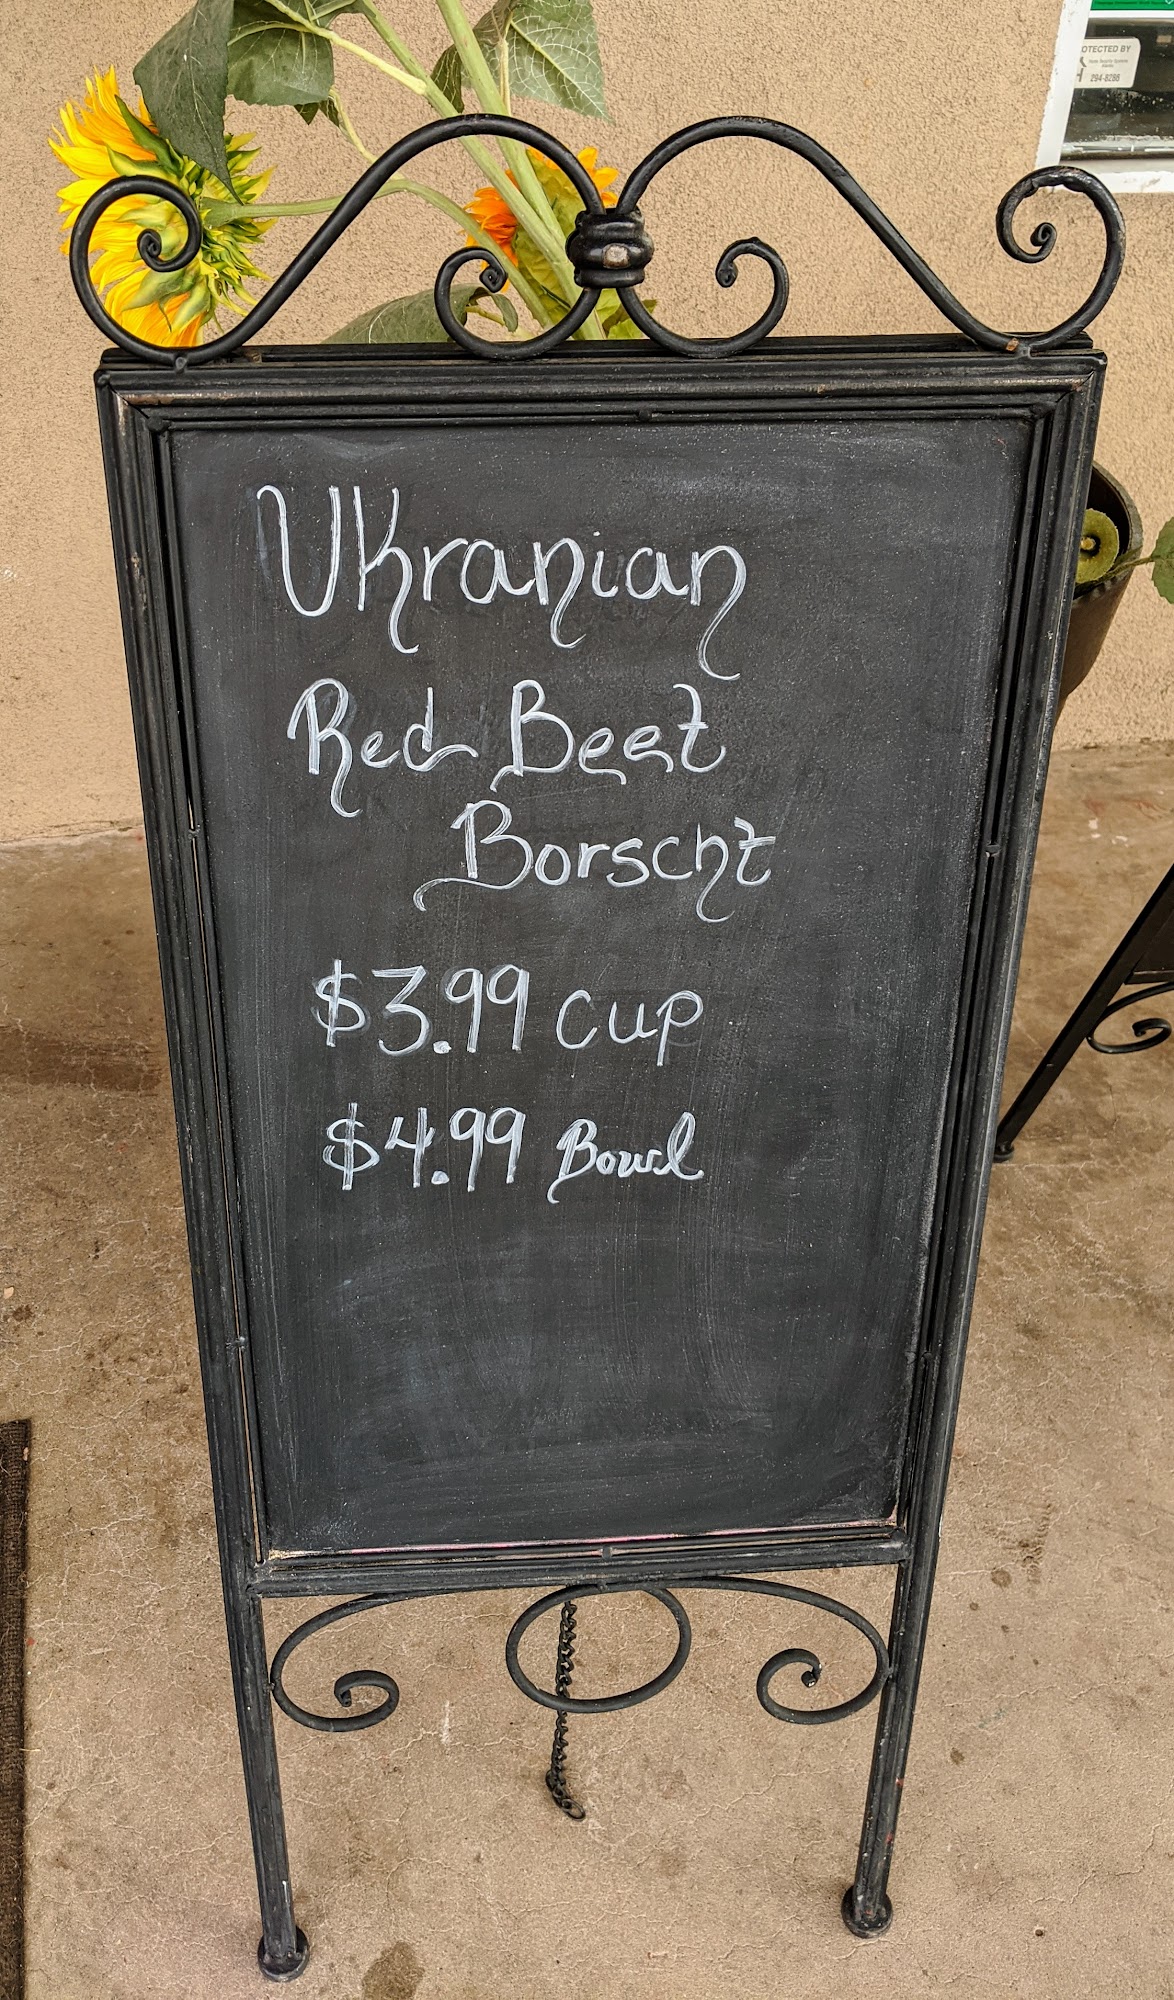 OTECTED BY
294-8286
UKranian
Red Beet
Borscht
$3.99 cup
$4.99 Bowl